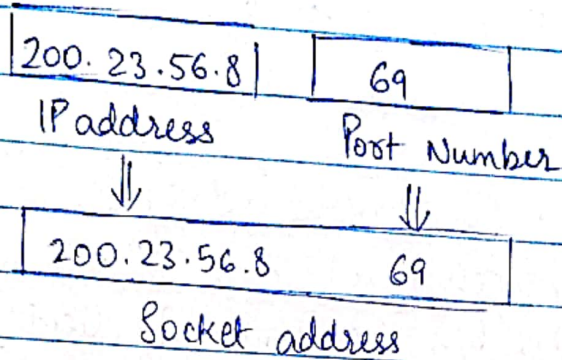 200.23.56.8 69
IP address Port Number
200.23.56.8 69
Socket address